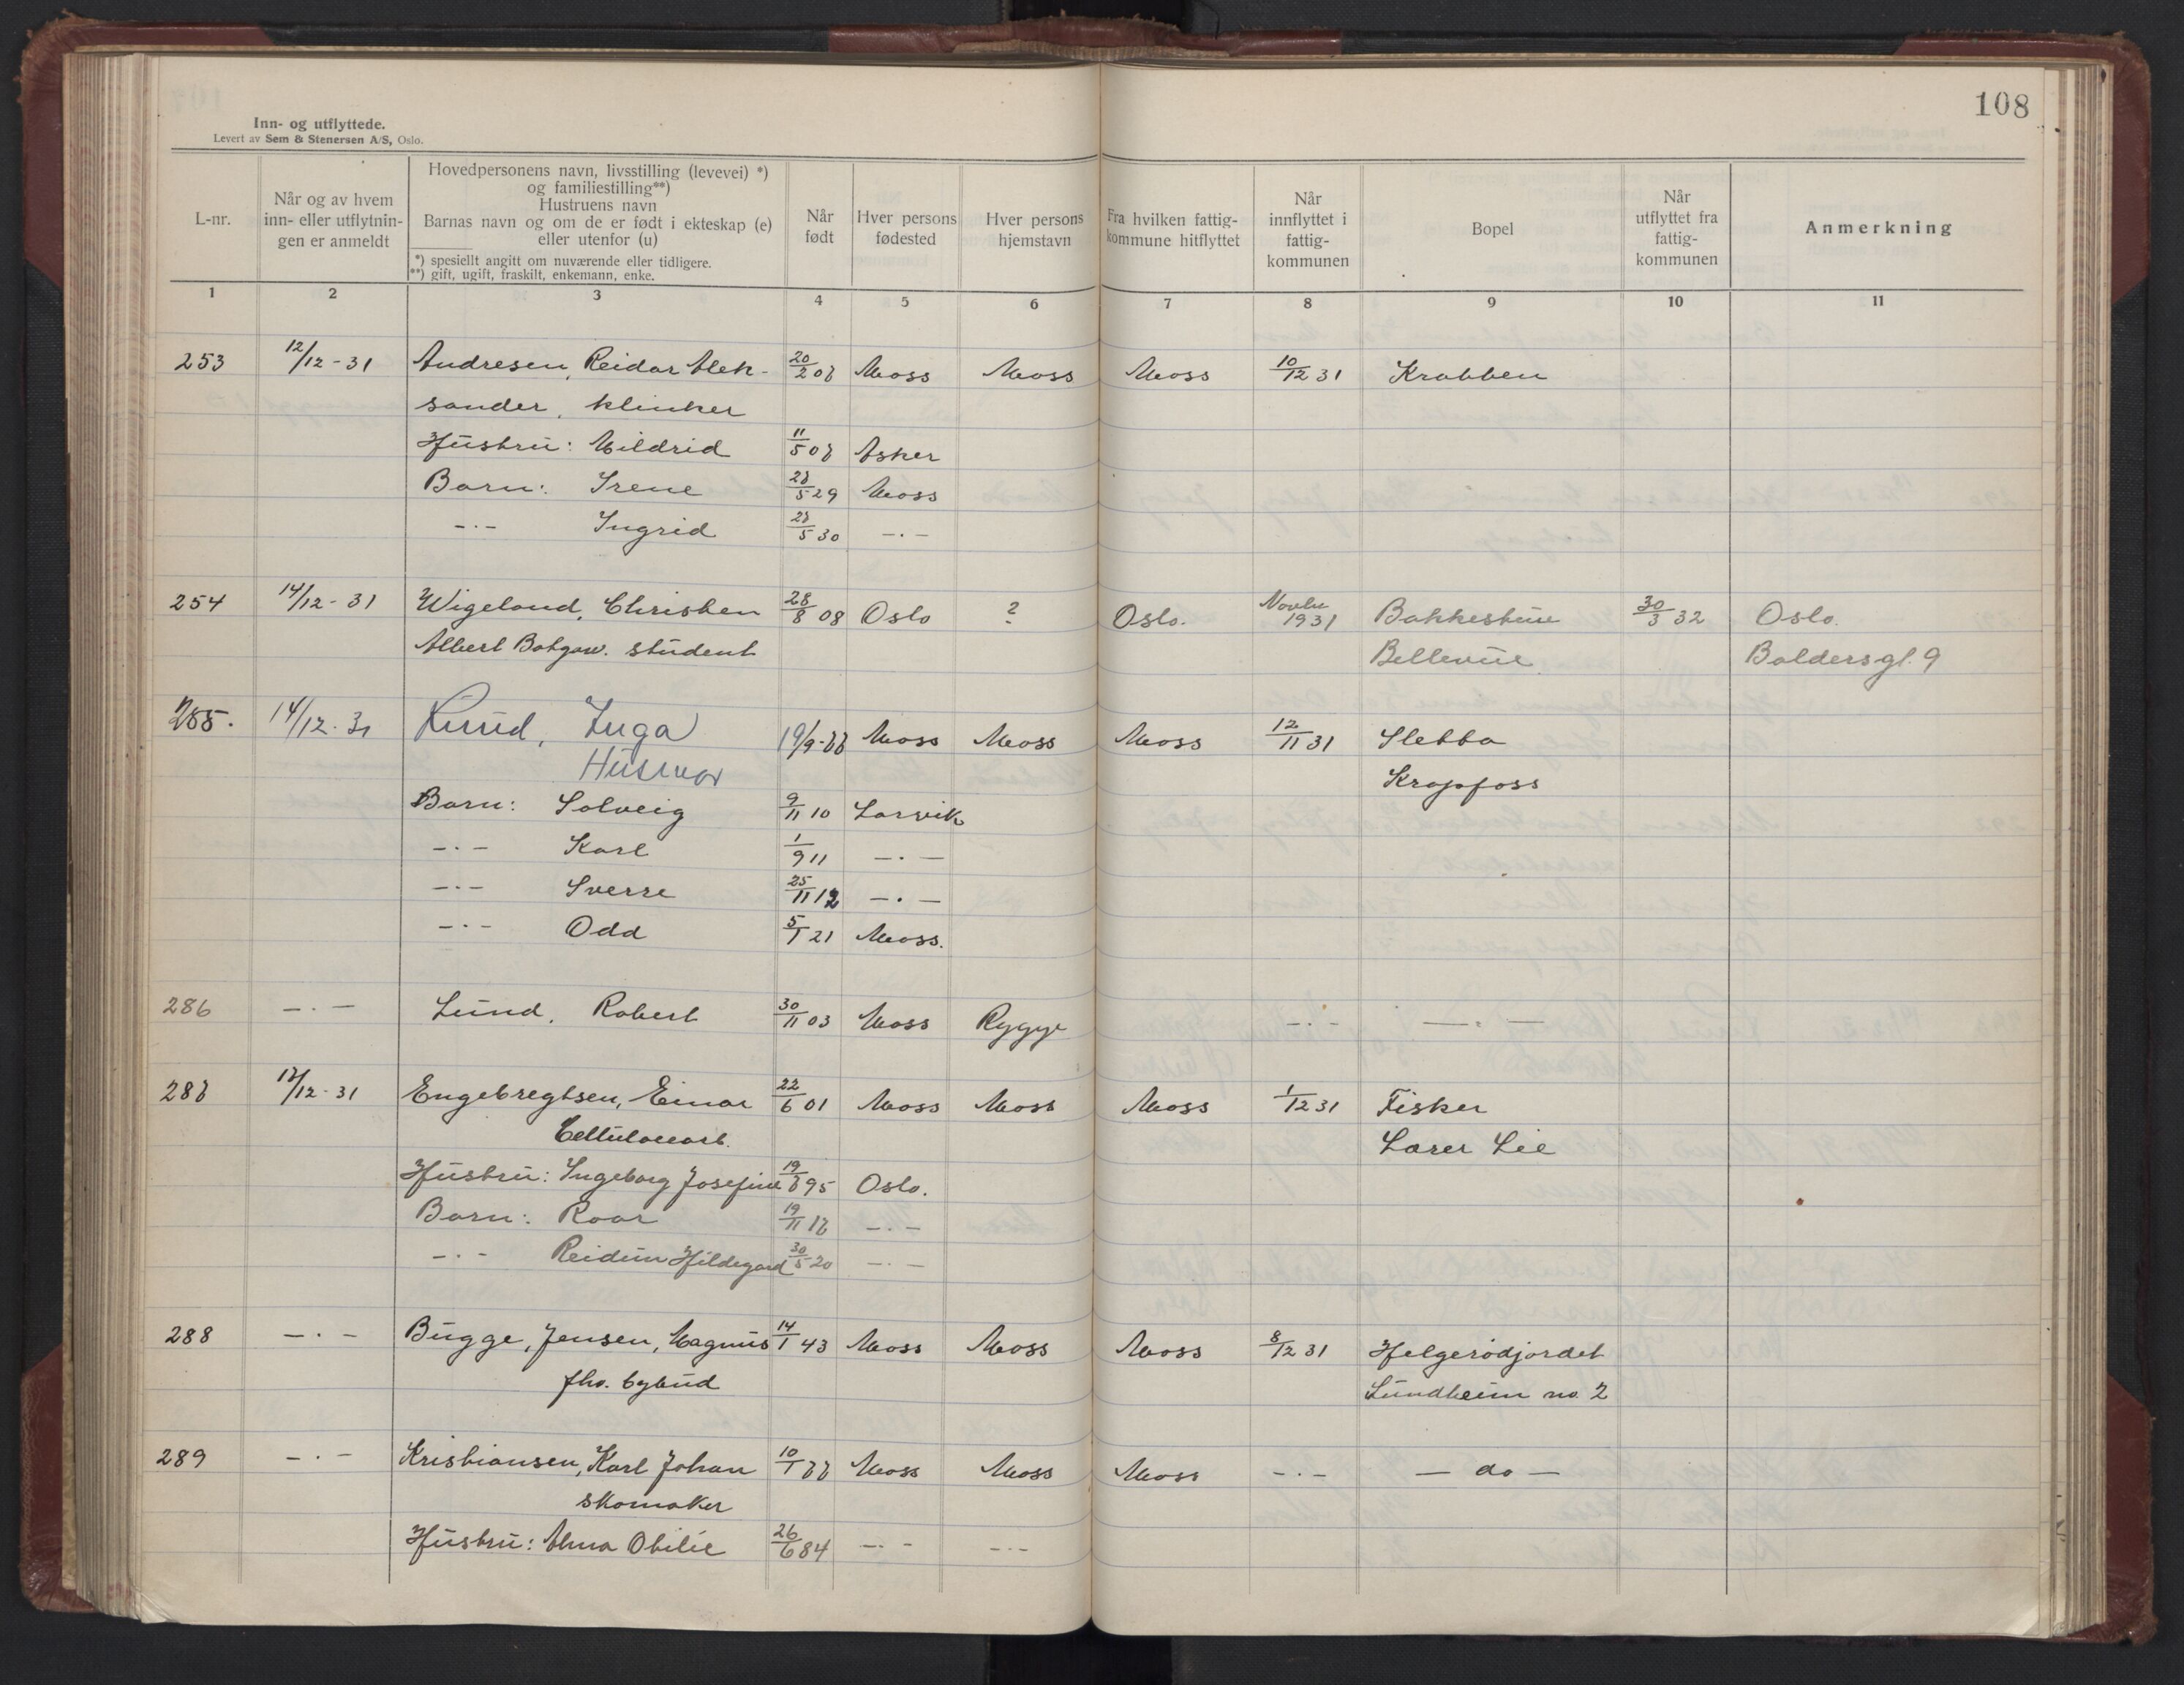 108
Inn- og utflyttede.
Levert av Sem & Stenersen A/S, Oslo.
L-nr.
Når og av hvem
inn- eller utflytnin-
gen er anmeldt
Hovedpersonens navn, livsstilling (levevei) *)
og familiestilling**)
Hustruens navn
Barnas navn og om de er født i ekteskap (e)
eller utenfor (u)
*) spesiellt angitt om nuværende eller tidligere.
**) gift, ugift, fraskilt, enkemann, enke.
Når
født
Hver persons
fødested
Hver persons
hjemstavn
Fra hvilken fattig-
kommune hitflyttet
Når
innflyttet i
fattig-
kommunen
Bopel
Når
utflyttet fra
fattig-
kommunen
Anmerkning
1 2 3 4 5 6 7 8 9 10 11
253 12/12-31 Andresen, Reidar Alek- 20/2 08 Moss Moss Moss 10/12 31 Krabben
sander, klinker
Hustru: Mildrid 11/5 08 Asker
Barn: Irene 28/5 29 Moss
-·- Ingrid 28/5 30 -·-
254 14/12-31 Wigeland, Christen 28/8 08 Oslo ? Oslo. Novbr 1931 Bakkestuue 30/3 32 Oslo.
Albert student Bellevue Baldersgt. 9
255. 14/12-31 Ruud, Inga 19/9-88 Moss Moss Moss 12/11 31 Sletta
Husmor Krapfoss
Barn: Solveig 9/11 10 Larvik
-·- Karl 1/9 11 -·-
-·- Sverre 25/11 12 -·-
-·- Odd 5/1 21 Moss.
286 -·- Lund, Robert 30/11 03 Moss Rygge -·- -·-
287 17/12-31 Engebregtsen, Einar 22/6 01 Moss Moss Moss 1/12 31 Fisker
Cellulosearb. Laser Lie
Hustru: Ingeborg Josefine 19/8 95 Oslo.
Barn: Roar 19/11 18 -·-
-·- Reidun Hildegard 30/5 20 -·-
288 -·- Bugge, Jensen, Magnus 14/1 43 Moss Moss Moss 8/12 31 Helgerødjordet
fhv. bybud Lundheim no. 2
289 -·- Kristiansen, Karl Johan 10/1 88 Moss Moss Moss -·- - do -
skomaker
Hustru: Alma Otilie 26/6 84 -·- -·-